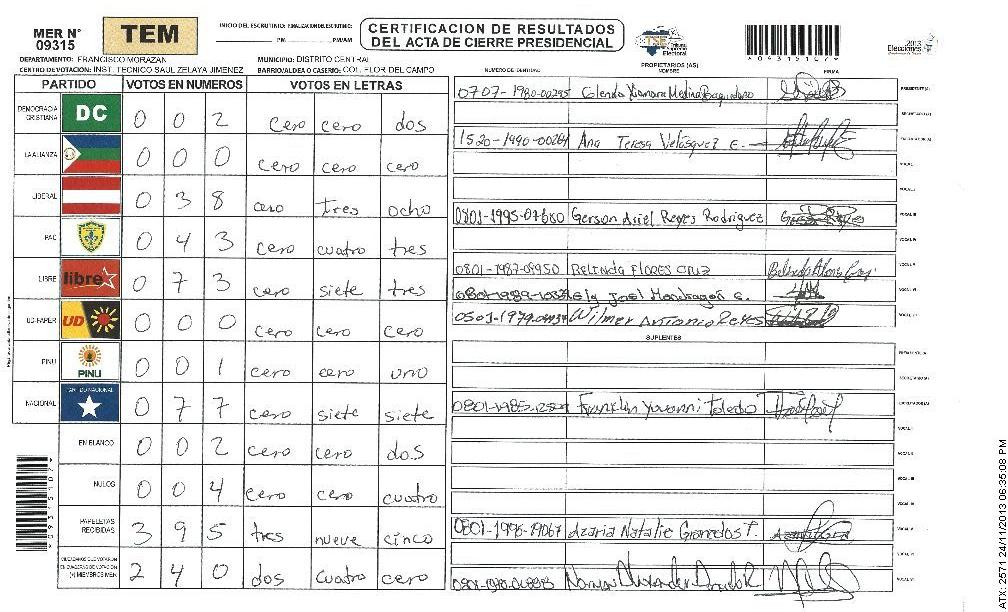 MER N° 09315
TEM
INICIO DEL ESCRUTINIO: FINALIZACION DEL ESCRUTINIO:
PM PM/AM
CERTIFICACION DE RESULTADOS
DEL ACTA DE CIERRE PRESIDENCIAL
TSE Tribunal Supremo Electoral
*09315107*
2013 Elecciones
DEPARTAMENTO: FRANCISCO MORAZAN MUNICIPIO: DISTRITO CENTRAL
CENTRO DE VOTACIÓN: INST. TECNICO SAUL ZELAYA JIMENEZ BARRIO/ALDEA O CASERIO: COL. FLOR DEL CAMPO
NUMERO DE IDENTIDAD PROPIETARIOS (AS) NOMBRE FIRMA
PARTIDO VOTOS EN NUMEROS VOTOS EN LETRAS
DEMOCRACIA CRISTIANA DC 0 0 2 cero cero dos
LA ALIANZA 0 0 0 cero cero cero
LIBERAL 0 3 8 cero tres ocho
PAC 0 4 3 cero cuatro tres
LIBRE libre 0 7 3 cero siete tres
UD-FAPER UD 0 0 0 cero cero cero
PINU PINU 0 0 1 cero cero uno
NACIONAL PARTIDO NACIONAL 0 7 7 cero siete siete
EN BLANCO 0 0 2 cero cero dos
NULOS 0 0 4 cero cero cuatro
PAPELETAS RECIBIDAS 3 9 5 tres nueve cinco
CIUDADANOS QUE VOTARON EN CUADERNO DE VOTACIÓN (+) MIEMBROS MER 2 4 0 dos cuatro cero
*09315107*
0707-1980-00295 Medina PRESIDENTE (A)
SECRETARIO (A)
1520-1990-00264 Ana Teresa Velásquez E. ESCRUTADOR (A)
VOCAL I
VOCAL II
0801-1995-07680 Gerson Ariel Reyes Rodriguez VOCAL III
VOCAL IV
0801-1987-09950 BELINDA FLORES CRUZ VOCAL V
Joel Mondragón VOCAL VI
Wilmer Antonio Reyes VOCAL VII
SUPLENTES
PRESIDENTE (A)
SECRETARIO (A)
Franklin Yovanni Toledo ESCRUTADOR (A)
VOCAL I
VOCAL II
VOCAL III
VOCAL IV
Azaria Natalie Granados F. VOCAL V
VOCAL VI
VOCAL VII
ATX 2571 24/11/2013 06:35:08 PM